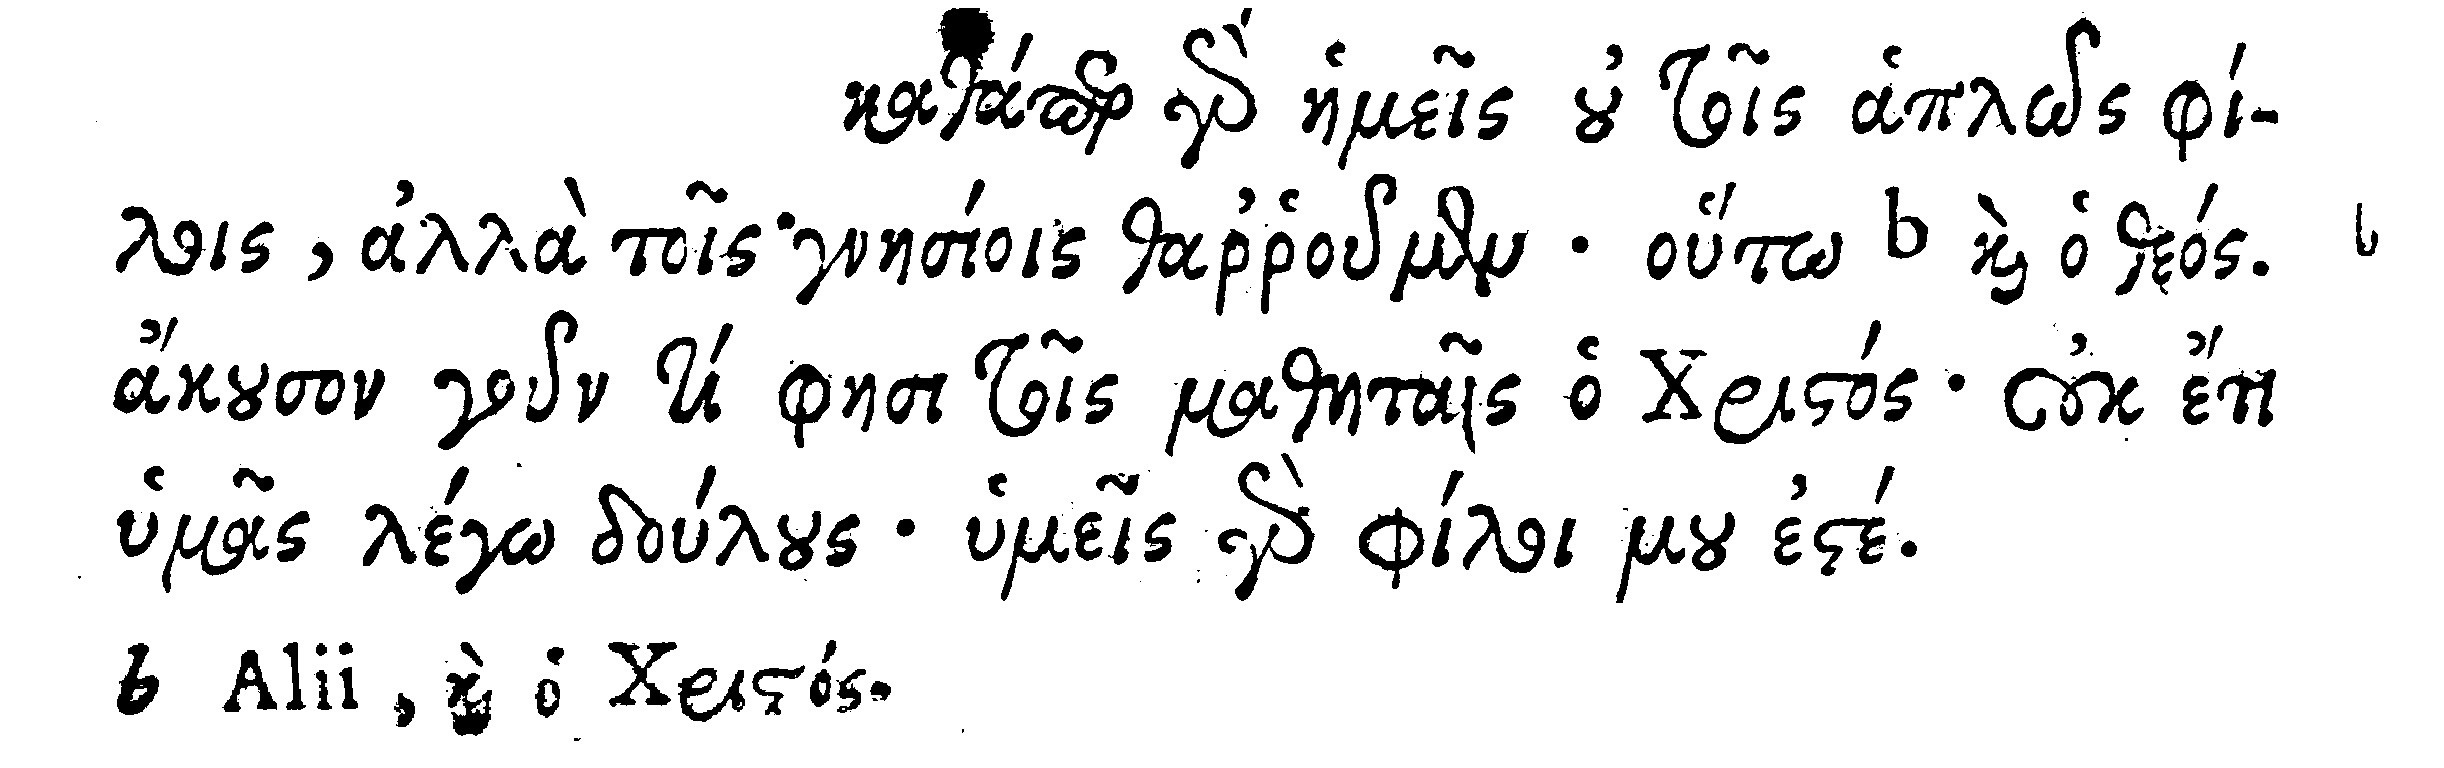 καθάπερ γὰρ ἡμεῖς οὐ τοῖς ἁπλῶς φί-
λοις, ἀλλὰ τοῖς γνησίοις θαῤῥοῦμεν · οὕτω b καὶ ὁ θεός. b
ἄκουσον γοῦν τί φησι τοῖς μαθηταῖς ὁ Χριστός · οὐκ ἔτι
ὑμᾶς λέγω δούλους · ὑμεῖς γὰρ φίλοι μου ἐστέ.
b Alii, καὶ ὁ Χριστός.